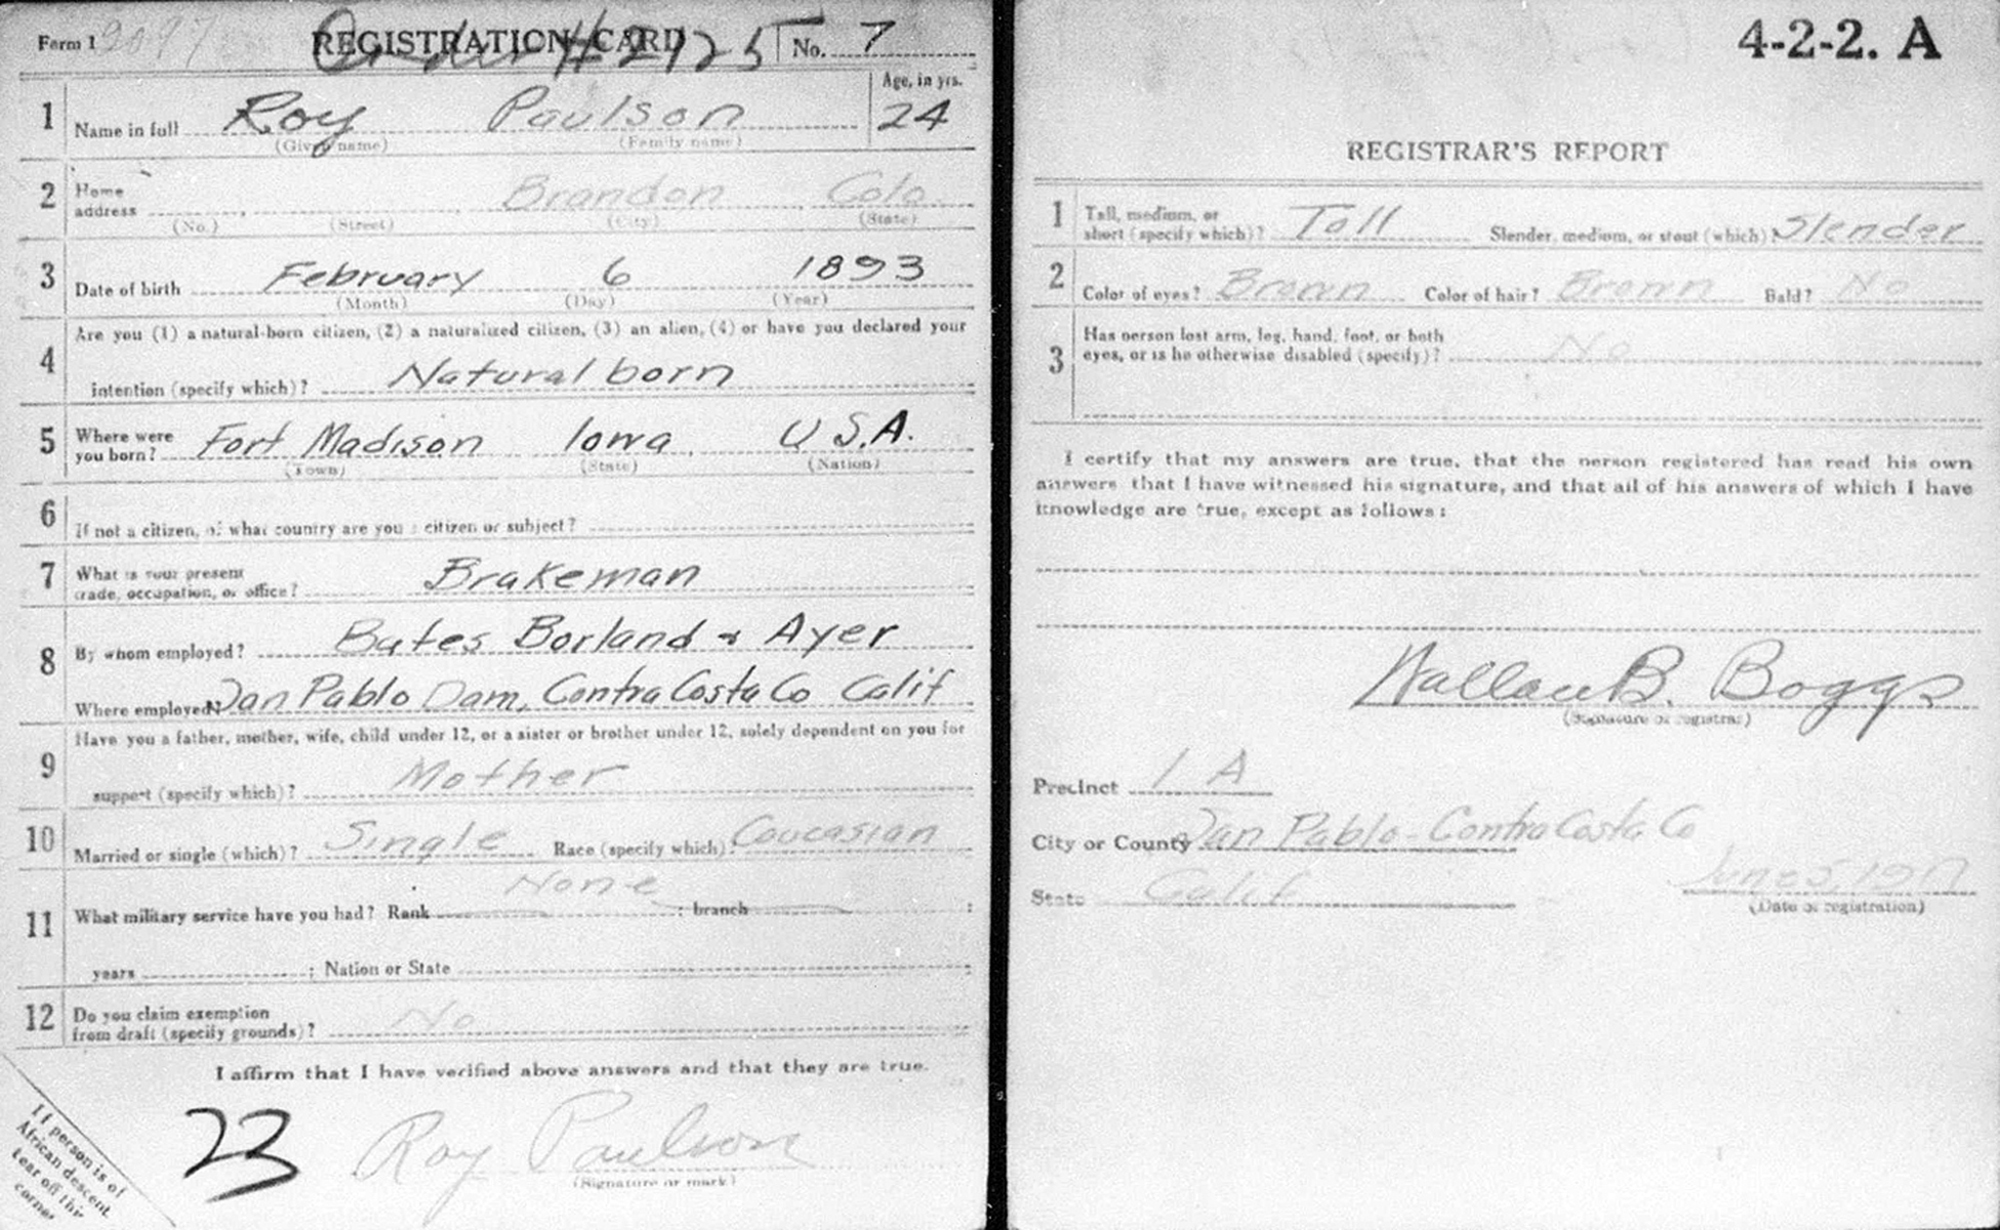 Form 1 2097 REGISTRATION CARD Order # 2125 No. 7
1 Name in full Roy Paulson Age, in yrs. 24
(Given name) (Family name)
2 Home address Brandon Colo
(No.) (Street) (City) (State)
3 Date of birth February 6 1893
(Month) (Day) (Year)
4 Are you (1) a natural-born citizen, (2) a naturalized citizen, (3) an alien, (4) or have you declared your
intention (specify which)? Natural born
5 Where were you born? Fort Madison Iowa U.S.A.
(Town) (State) (Nation)
6 If not a citizen, of what country are you a citizen or subject?
7 What is your present
trade, occupation, or office? Brakeman
8 By whom employed? Bates Borland & Ayer
Where employed? San Pablo Dam, Contra Costa Co Calif
9 Have you a father, mother, wife, child under 12, or a sister or brother under 12, solely dependent on you for
support (specify which)? Mother
10 Married or single (which)? Single Race (specify which)? Caucasian
None
11 What military service have you had? Rank ; branch ;
years ; Nation or State
12 Do you claim exemption
from draft (specify grounds)? No
I affirm that I have verified above answers and that they are true.
23 Roy Paulson
(Signature or mark)
If person is of
African descent,
tear off this
corner
4-2-2. A
REGISTRAR'S REPORT
1 Tall, medium, or
short (specify which)? Tall Slender, medium, or stout (which)? Slender
2 Color of eyes? Brown Color of hair? Brown Bald? No
3 Has person lost arm, leg, hand, foot, or both
eyes, or is he otherwise disabled (specify)? No
I certify that my answers are true, that the person registered has read his own
answers that I have witnessed his signature, and that all of his answers of which I have
knowledge are true, except as follows:
B. Boggs
(Signature of registrar)
Precinct 1 A
City or County San Pablo - Contra Costa Co
State Calif June 5 1917
(Date of registration)